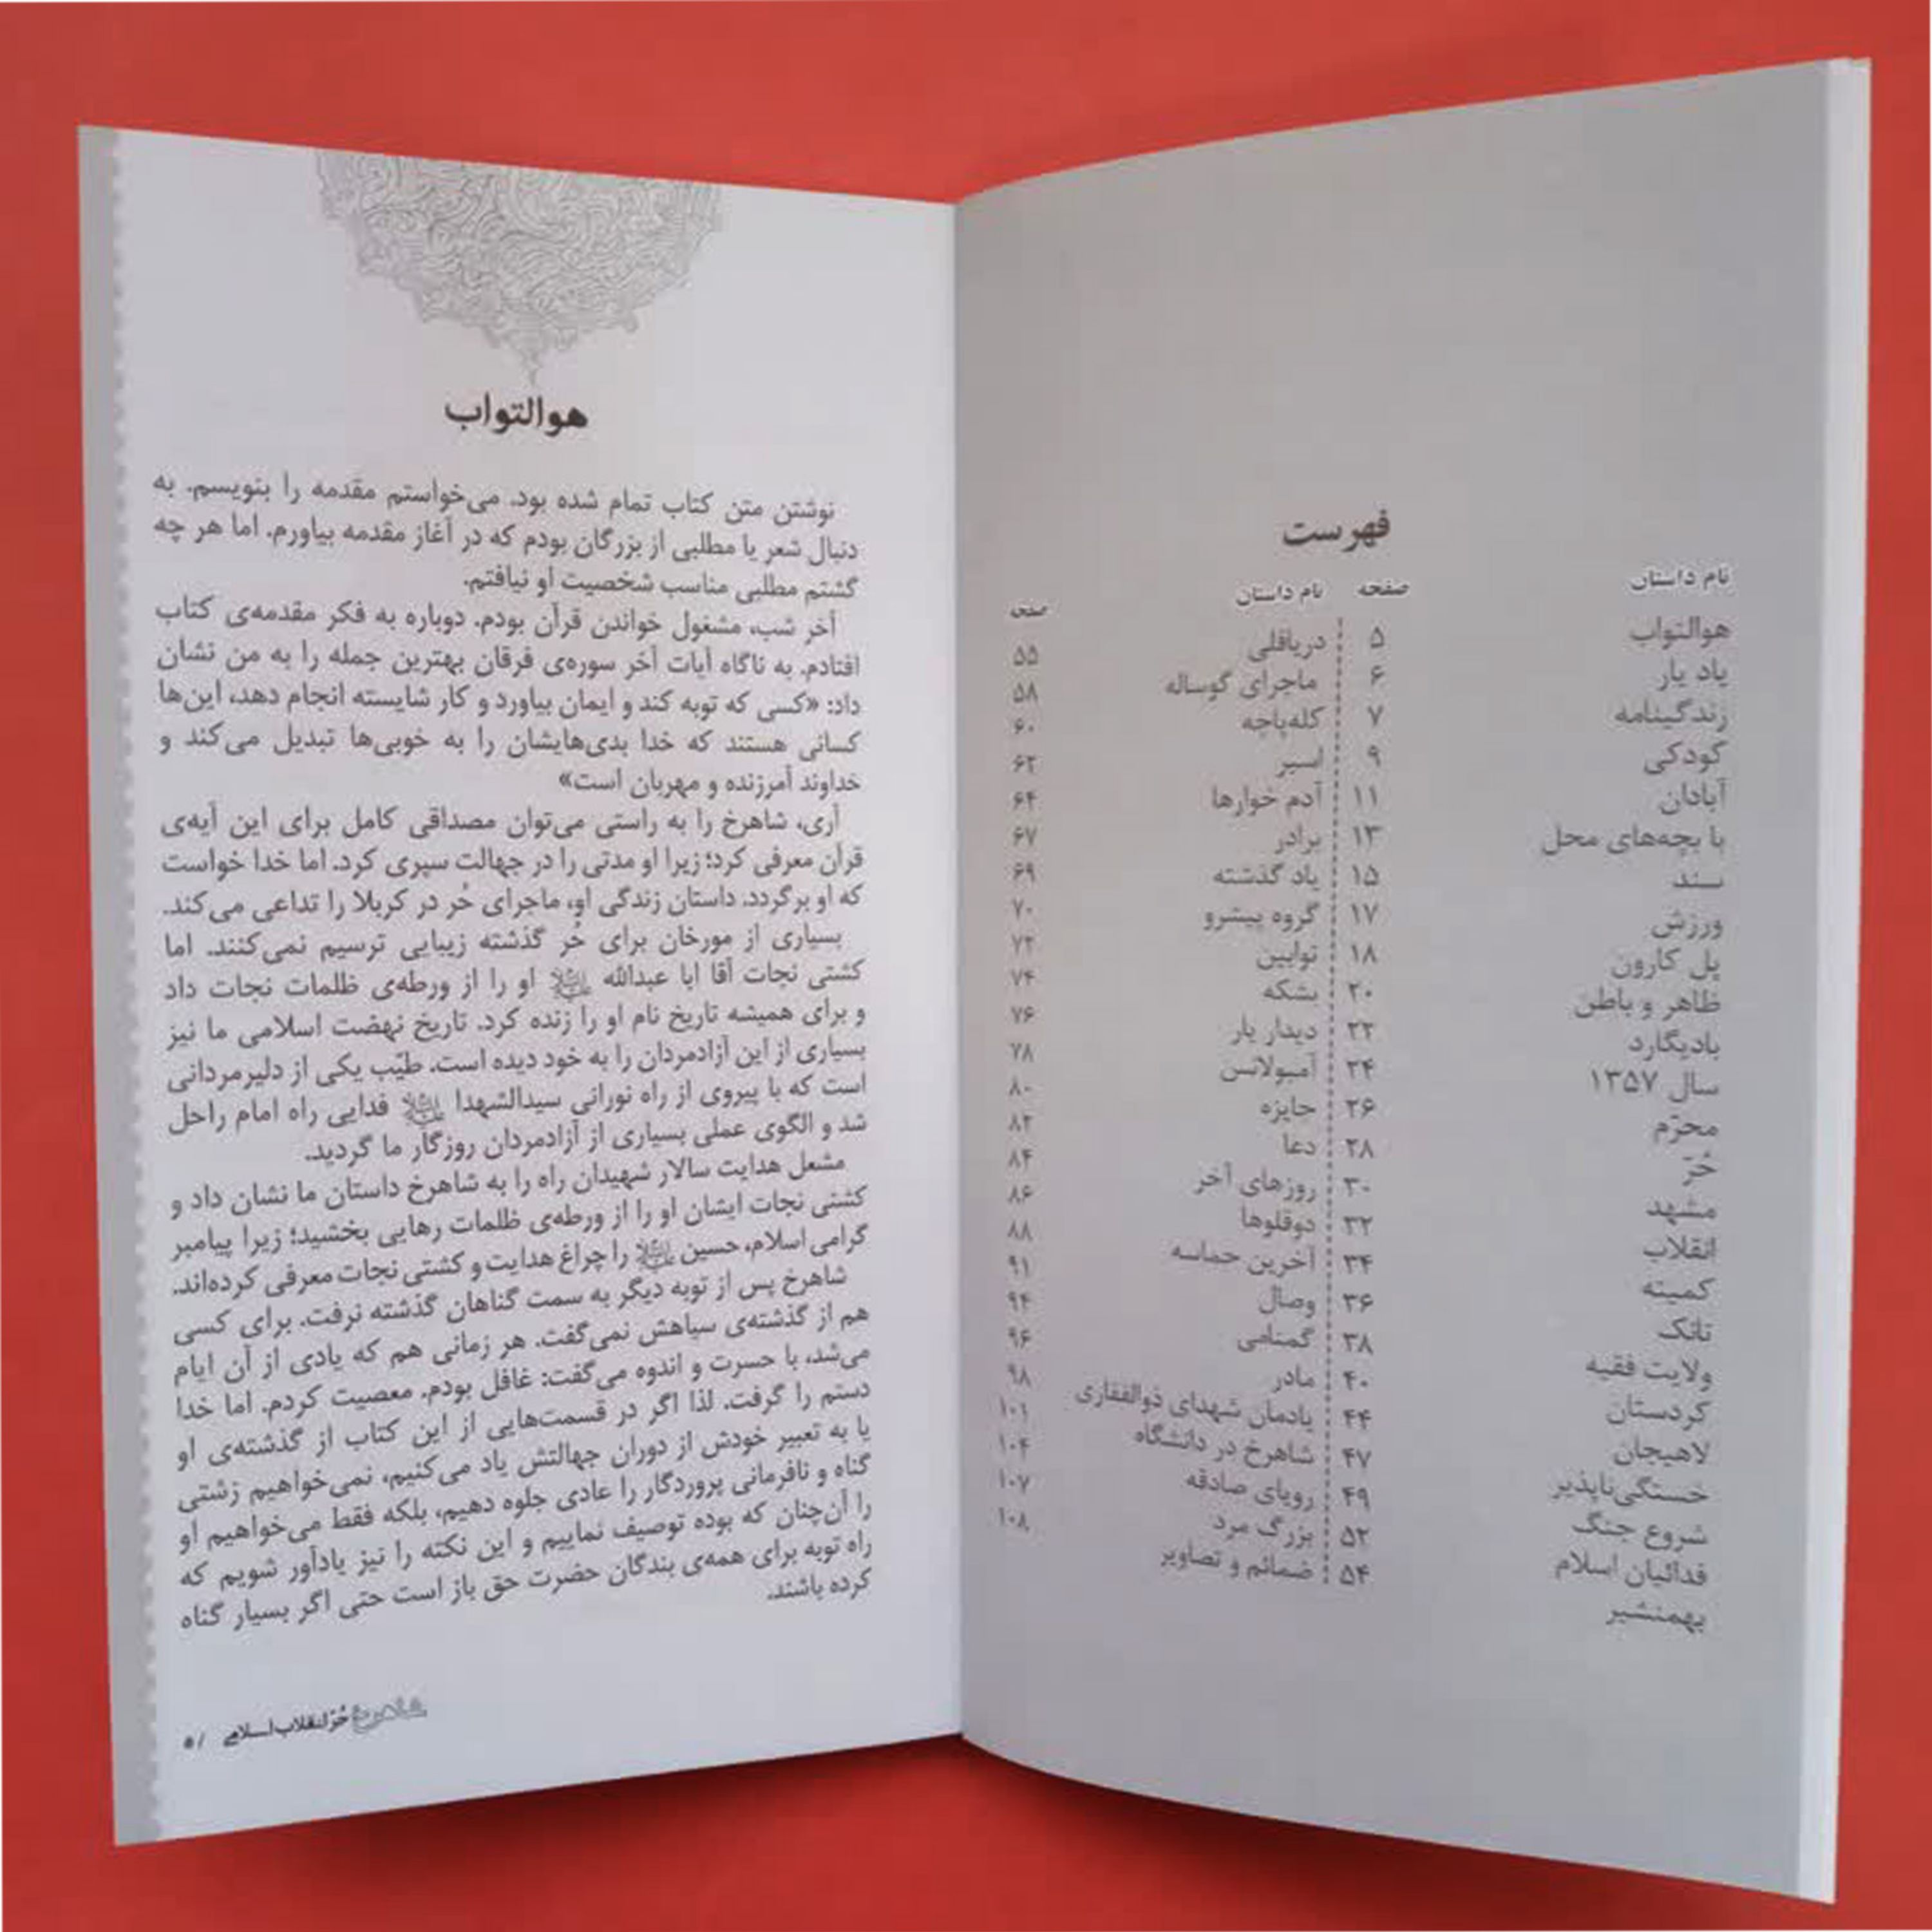 فهرست
نام داستان صفحه نام داستان صفحه
هوالتواب ۵ دریاقلی ۵۵
یاد یار ۶ ماجرای گوساله ۵۸
زندگینامه ۷ کله‌پاچه ۶۰
کودکی ۹ اسیر ۶۲
آبادان ۱۱ آدم خوارها ۶۴
با بچه‌های محل ۱۳ برادر ۶۷
سند ۱۵ یاد گذشته ۶۹
ورزش ۱۷ گروه پیشرو ۷۰
پل کارون ۱۸ توابین ۷۲
ظاهر و باطن ۲۰ بشکه ۷۴
بادیگارد ۲۲ دیدار یار ۷۶
سال ۱۳۵۷ ۲۴ آمبولانس ۷۸
محرّم ۲۶ جایزه ۸۰
حُرّ ۲۸ دعا ۸۲
مشهد ۳۰ روزهای آخر ۸۴
انقلاب ۳۲ دوقلوها ۸۶
کمیته ۳۴ آخرین حماسه ۸۸
تانک ۳۶ وصال ۹۱
ولایت فقیه ۳۸ گمنامی ۹۴
کردستان ۴۰ مادر ۹۶
لاهیجان ۴۴ یادمان شهدای ذوالفقاری ۹۸
خستگی‌ناپذیر ۴۷ شاهرخ در دانشگاه ۱۰۱
شروع جنگ ۴۹ رویای صادقه ۱۰۴
فدائیان اسلام ۵۲ بزرگ مرد ۱۰۷
بهمنشیر ۵۴ ضمائم و تصاویر ۱۰۸
هوالتواب
نوشتن متن کتاب تمام شده بود. می‌خواستم مقدمه را بنویسم. به
دنبال شعر یا مطلبی از بزرگان بودم که در آغاز مقدمه بیاورم. اما هر چه
گشتم مطلبی مناسب شخصیت او نیافتم.
آخر شب، مشغول خواندن قرآن بودم. دوباره به فکر مقدمه‌ی کتاب
افتادم. به ناگاه آیات آخر سوره‌ی فرقان بهترین جمله را به من نشان
داد: «کسی که توبه کند و ایمان بیاورد و کار شایسته انجام دهد، این‌ها
کسانی هستند که خدا بدی‌هایشان را به خوبی‌ها تبدیل می‌کند و
خداوند آمرزنده و مهربان است»
آری، شاهرخ را به راستی می‌توان مصداقی کامل برای این آیه‌ی
قرآن معرفی کرد؛ زیرا او مدتی را در جهالت سپری کرد. اما خدا خواست
که او برگردد. داستان زندگی او، ماجرای حُر در کربلا را تداعی می‌کند.
بسیاری از مورخان برای حُر گذشته زیبایی ترسیم نمی‌کنند. اما
کشتی نجات آقا ابا عبدالله او را از ورطه‌ی ظلمات نجات داد
و برای همیشه تاریخ نام او را زنده کرد. تاریخ نهضت اسلامی ما نیز
بسیاری از این آزادمردان را به خود دیده است. طیّب یکی از دلیرمردانی
است که با پیروی از راه نورانی سیدالشهدا فدایی راه امام راحل
شد و الگوی عملی بسیاری از آزادمردان روزگار ما گردید.
مشعل هدایت سالار شهیدان راه را به شاهرخ داستان ما نشان داد و
کشتی نجات ایشان او را از ورطه‌ی ظلمات رهایی بخشید؛ زیرا پیامبر
گرامی اسلام، حسین را چراغ هدایت و کشتی نجات معرفی کرده‌اند.
شاهرخ پس از توبه دیگر به سمت گناهان گذشته نرفت. برای کسی
هم از گذشته‌ی سیاهش نمی‌گفت. هر زمانی هم که یادی از آن ایام
می‌شد، با حسرت و اندوه می‌گفت: غافل بودم. معصیت کردم. اما خدا
دستم را گرفت. لذا اگر در قسمت‌هایی از این کتاب از گذشته‌ی او
یا به تعبیر خودش از دوران جهالتش یاد می‌کنیم، نمی‌خواهیم زشتی
گناه و نافرمانی پروردگار را عادی جلوه دهیم، بلکه فقط می‌خواهیم او
را آن‌چنان که بوده توصیف نماییم و این نکته را نیز یادآور شویم که
راه توبه برای همه‌ی بندگان حضرت حق باز است حتی اگر بسیار گناه
کرده باشند.
شاهرخ حُرّ انقلاب اسلامی / ۵